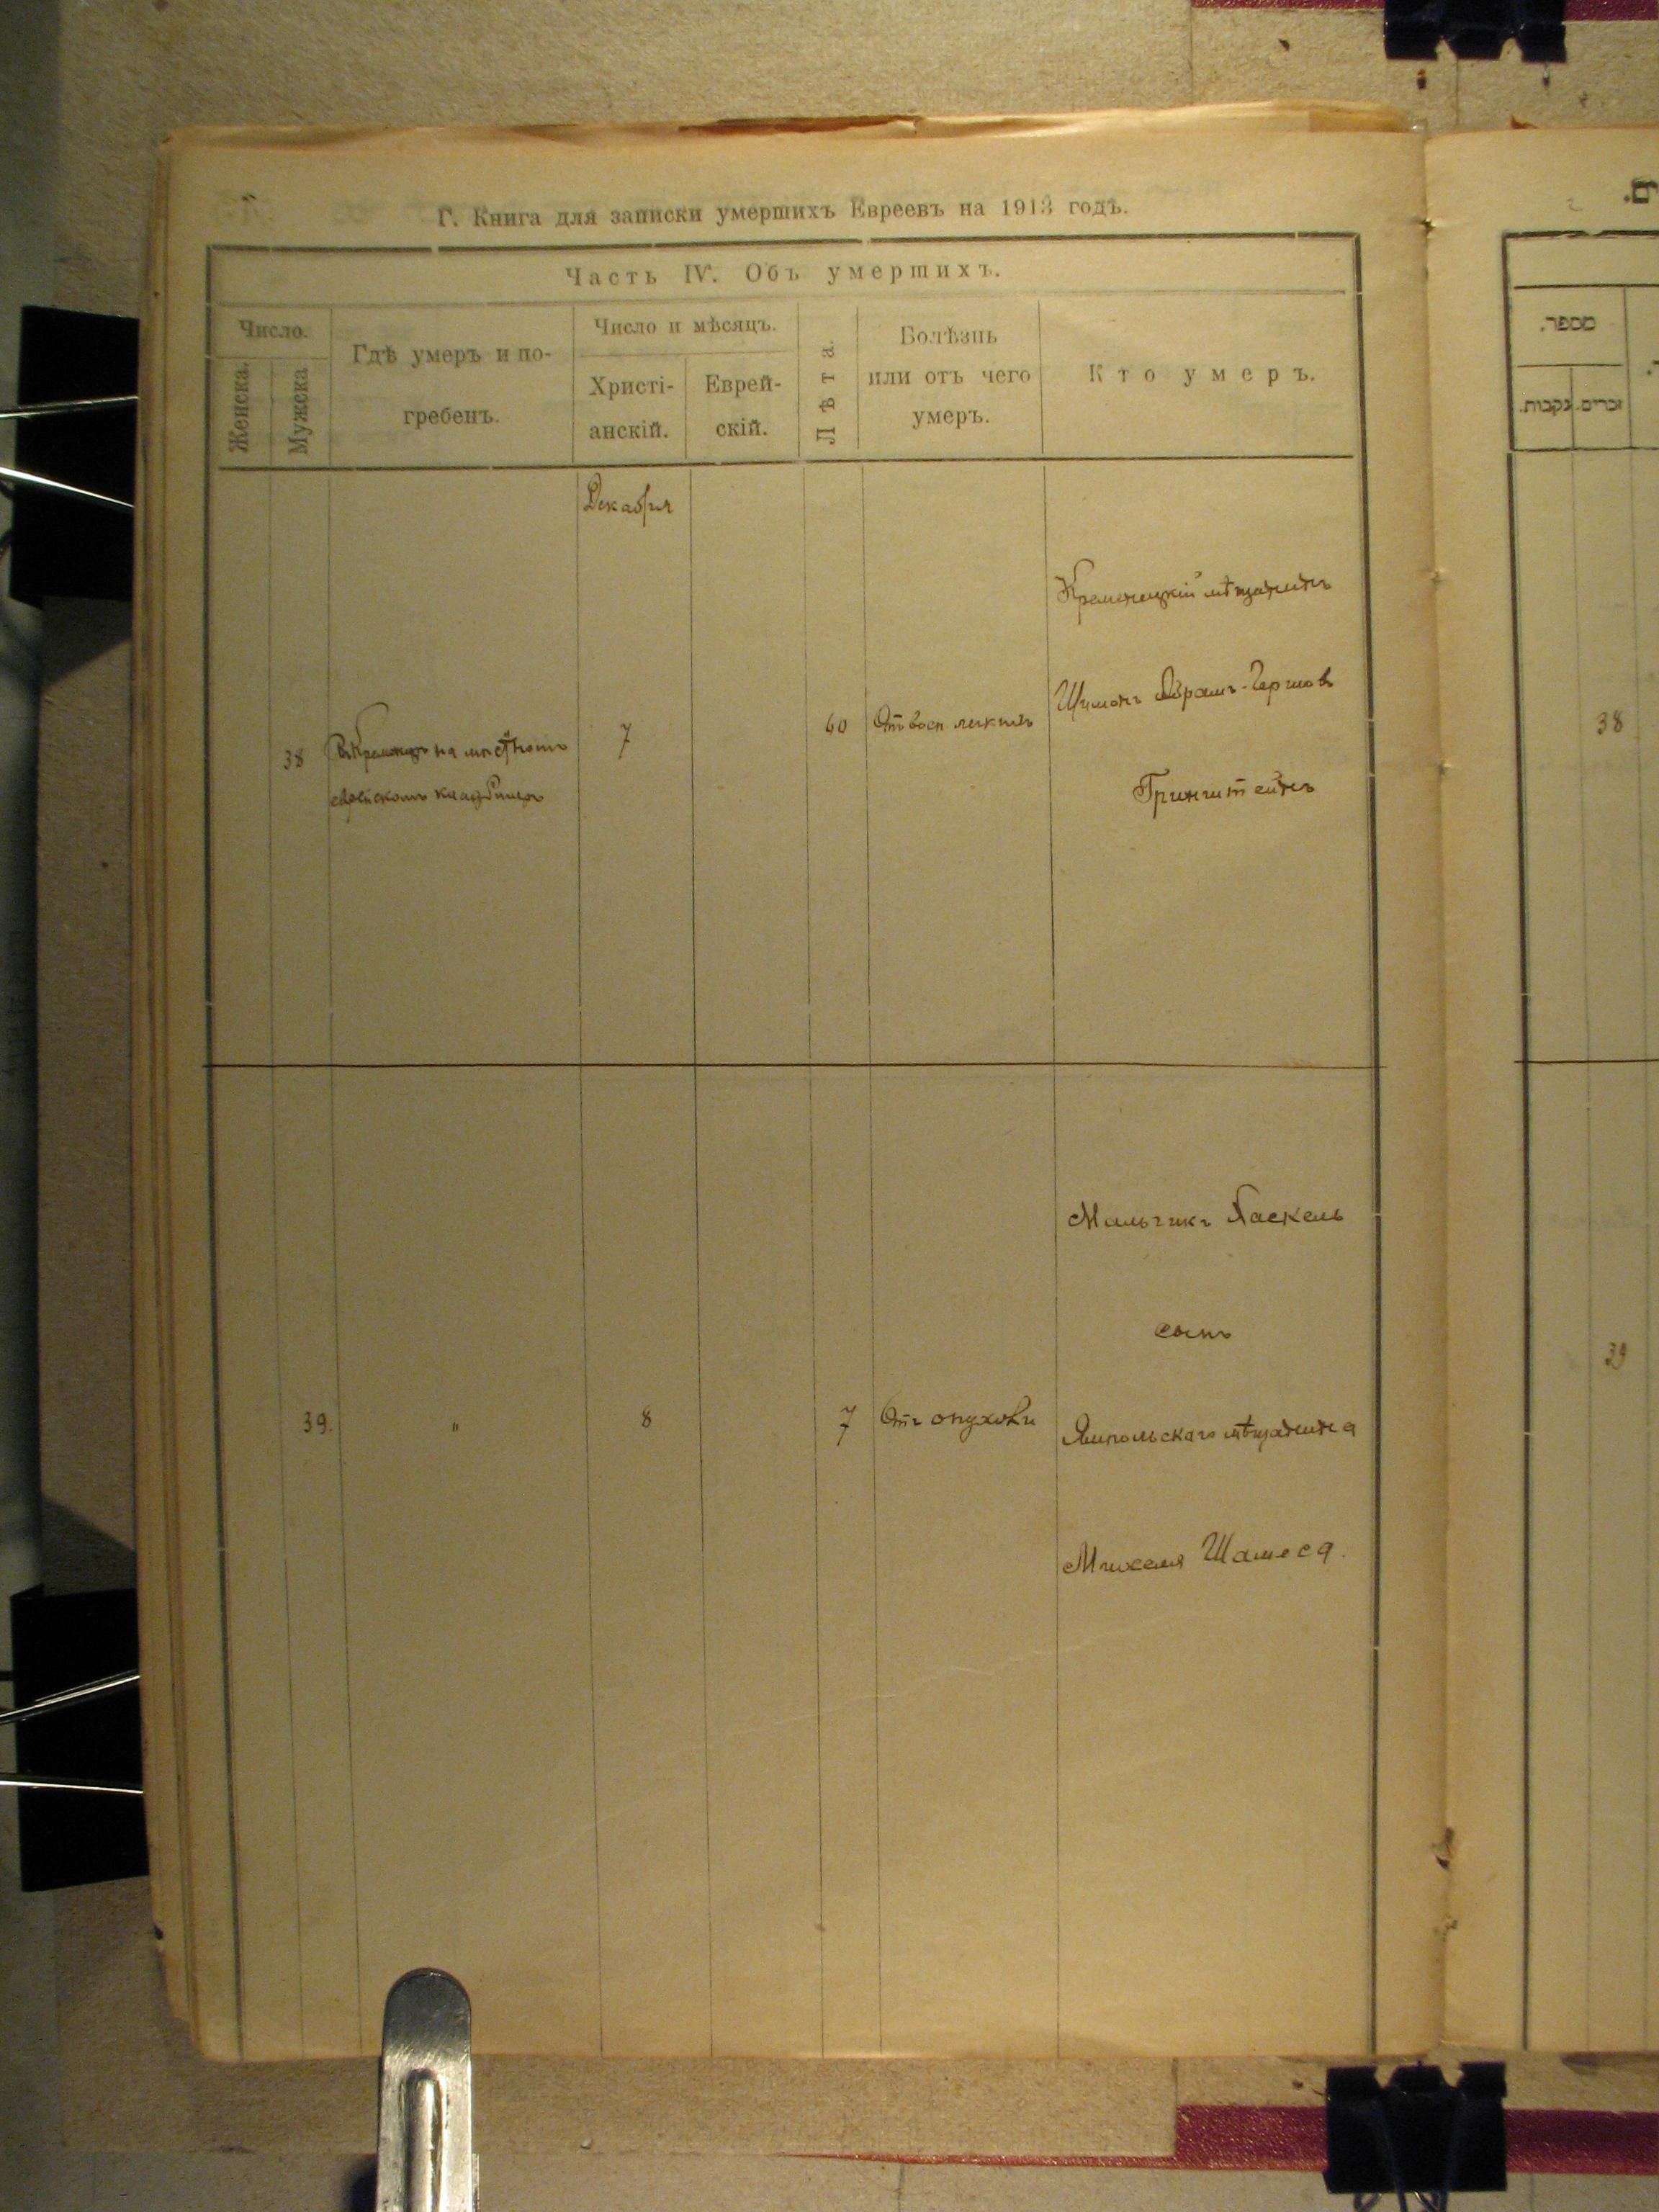 Г. Книга для записки умершихъ Евреевъ на 1913 годъ.
Часть IV. Объ умершихъ.
Число.
Женска.
Мужска
Гдѣ умеръ и по-
гребенъ.
Число и мѣсяцъ.
Христі-
анскій.
Еврей-
скій.
Лѣта.
Болѣзнь
или отъ чего
умеръ.
Кто умеръ.
Декабря
38
Въ Кременцѣ на мѣстномъ
еврейскомъ кладбищѣ
7
60
Отъ восп. легкихъ
Кременецкій мѣщанинъ
Шимонъ Абрамъ-Гершов
Гринштейнъ
39.
"
8
7
Отъ опухоли
Мальчикъ Хаскель
сынъ
Ямпольскаго мѣщанина
Михеля Шамеса.
מספר.
זכרים.
נקבות.
38
39